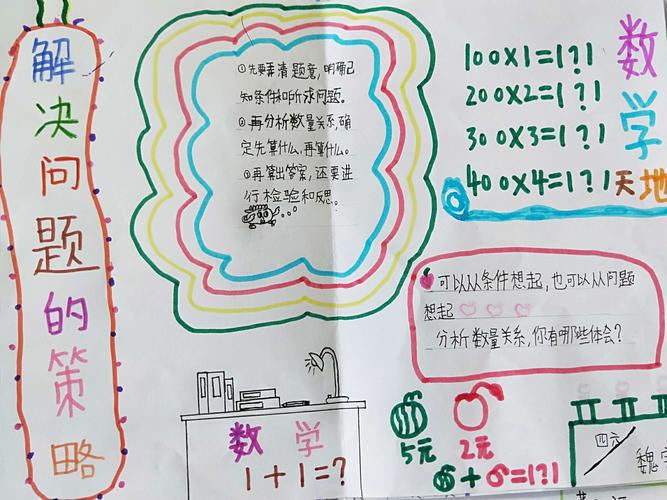 解决问题的策略
①先要弄清题意,明确已
知条件和所求问题。
②再分析数量关系,确
定先算什么,再算什么。
③再算出答案,还要进
行检验和反思。
100×1=1?1
200×2=1?1
300×3=1?1
400×4=1?1
数学天地
可以从条件想起,也可以从问题
想起
分析数量关系,你有哪些体会?
数学
1+1=?
5元 2元
+ =1?1
四元
魏